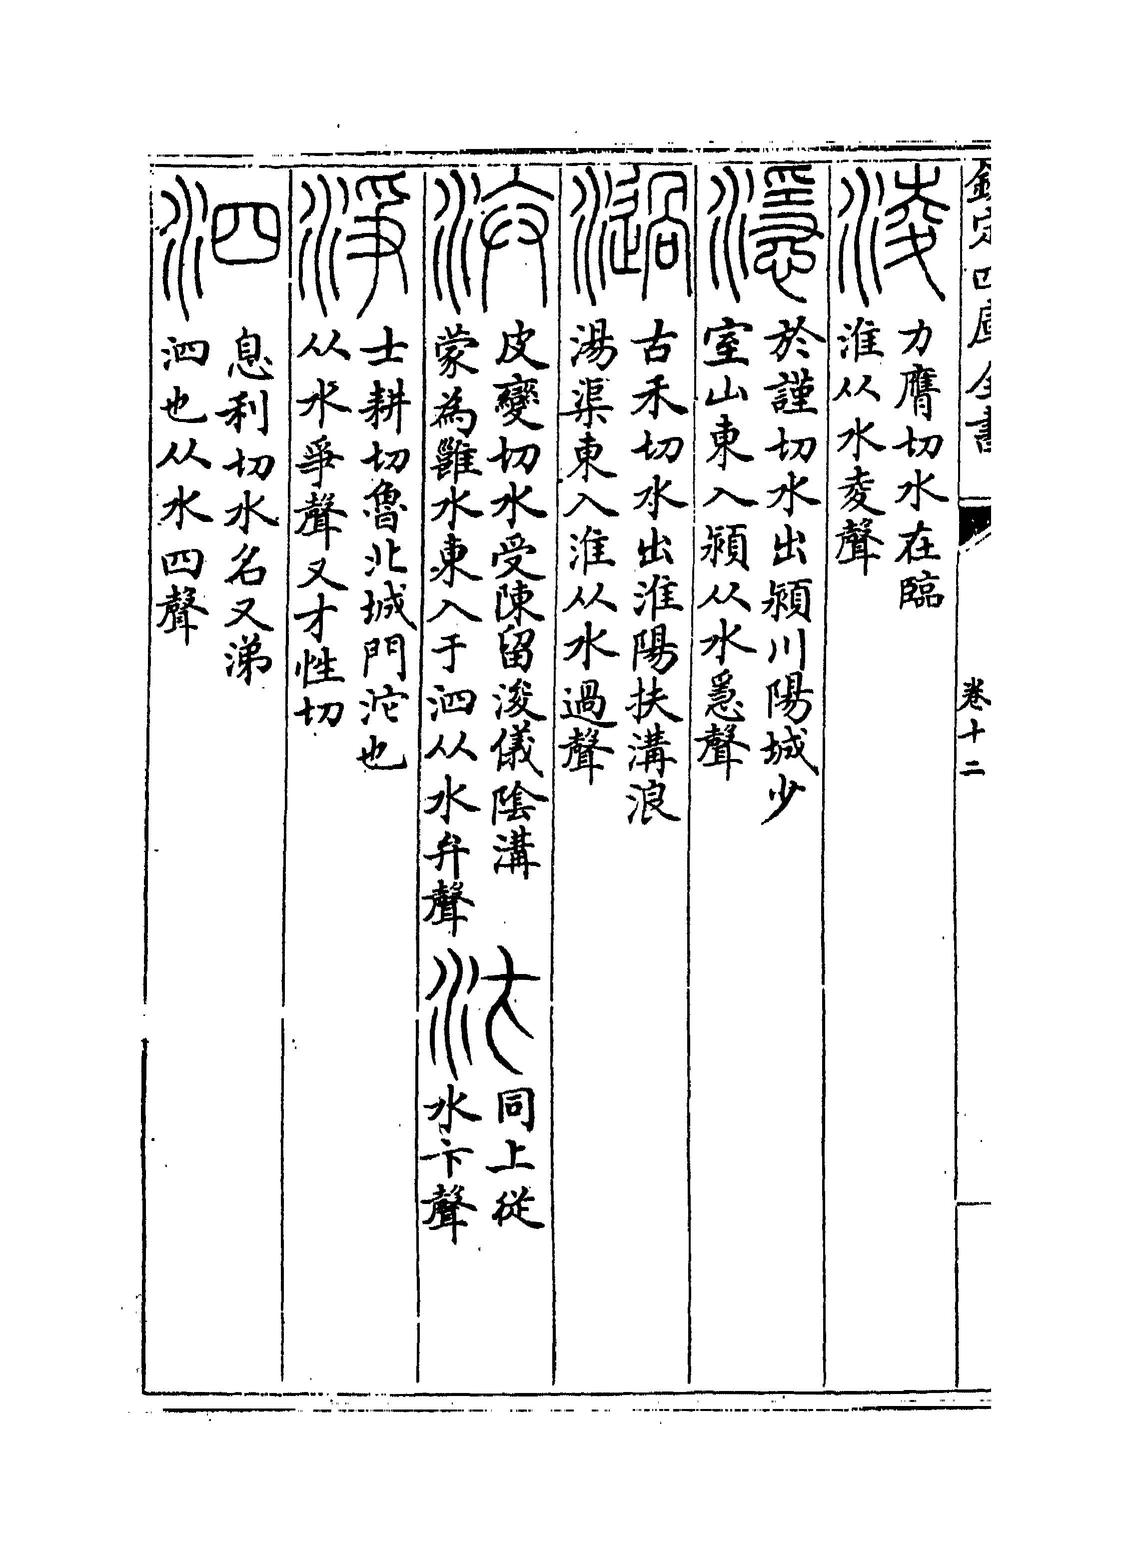 欽定四庫全書
卷十二
淩
力膺切水在臨
淮从水夌聲
濦
於謹切水出潁川陽城少
室山東入潁从水㥯聲
濄
古禾切水出淮陽扶溝浪
湯渠東入淮从水過聲
汳
皮變切水受陳留浚儀陰溝
蒙為雝水東入于泗从水弁聲
汴
同上從
水卞聲
淨
士耕切魯北城門沱也
从水爭聲又才性切
泗
息利切水名又涕
泗也从水四聲